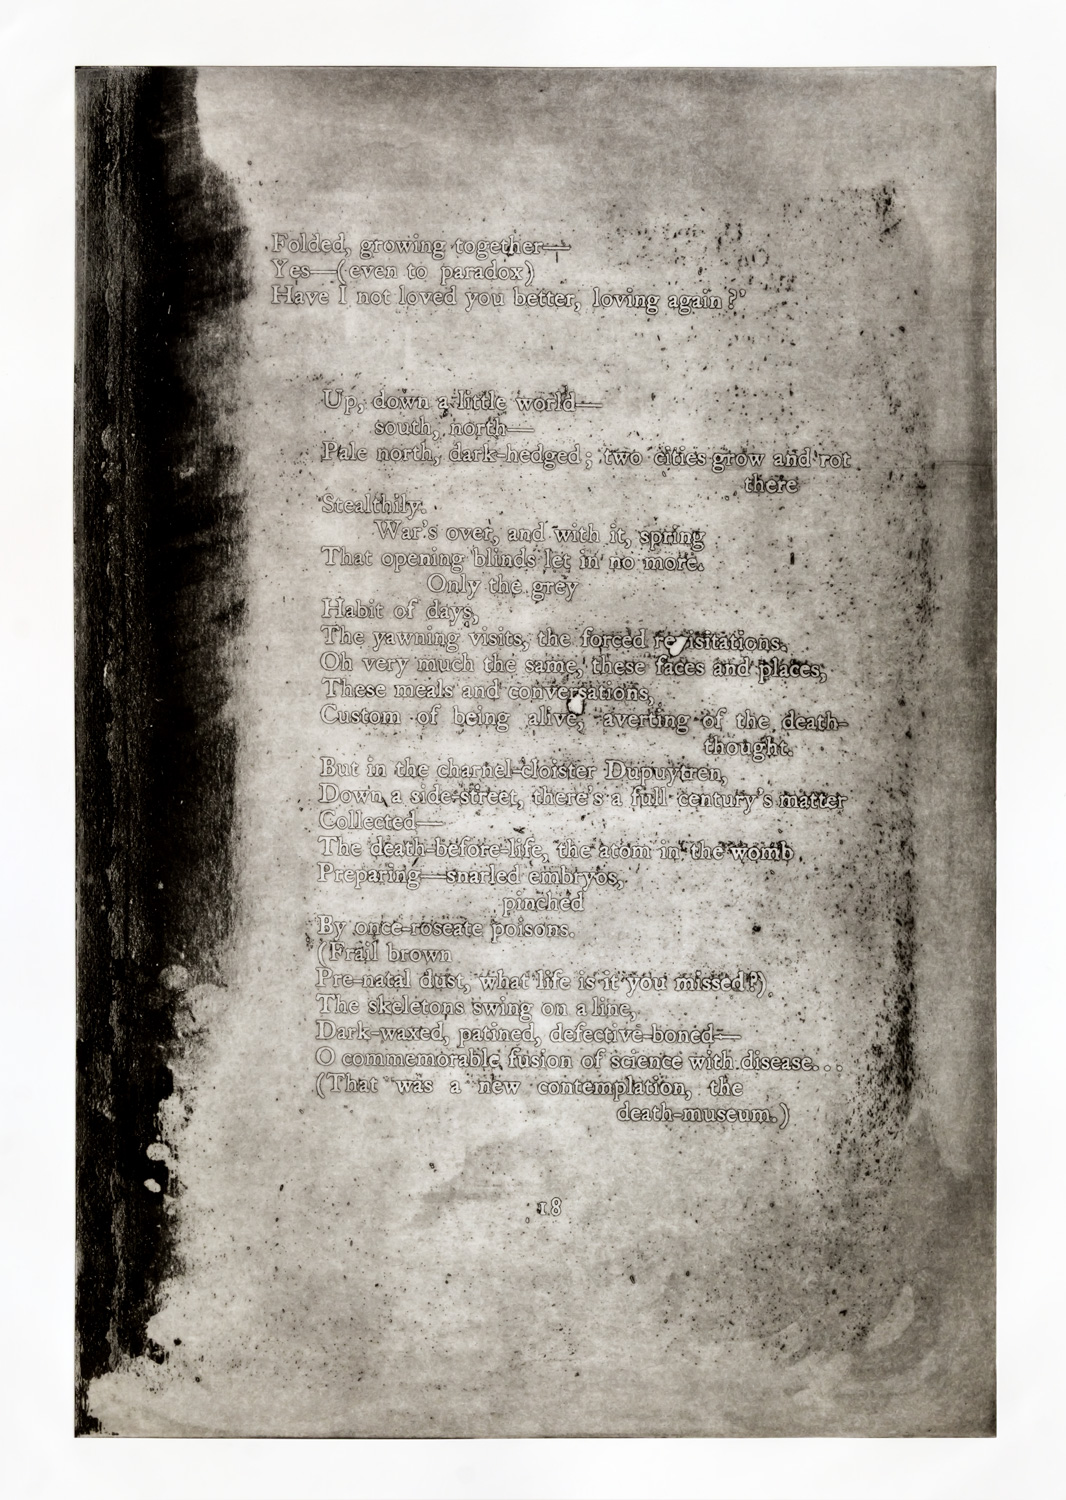 Folded, growing together—
Yes—(even to paradox)
Have I not loved you better, loving again?’
Up, down a little world—
south, north—
Pale north, dark-hedged; two cities grow and rot
there
Stealthily.
War’s over, and with it, spring
That opening blinds let in no more.
Only the grey
Habit of days,
The yawning visits, the forced revisitations.
Oh very much the same, these faces and places,
These meals and conversations,
Custom of being alive, averting of the death-
thought.
But in the charnel-cloister Dupuytren,
Down a side-street, there’s a full century’s matter
Collected—
The death-before-life, the atom in the womb
Preparing—snarled embryos,
pinched
By once-roseate poisons.
(Frail brown
Pre-natal dust, what life is it you missed?)
The skeletons swing on a line,
Dark-waxed, patined, defective-boned—
O commemorable fusion of science with disease...
(That was a new contemplation, the
death-museum.)
18